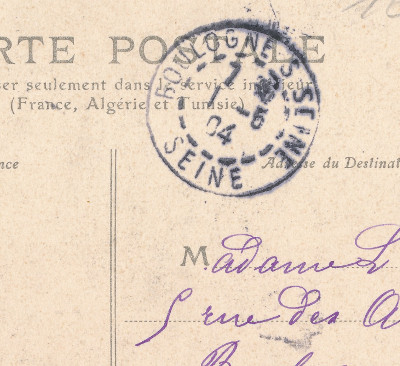 RTE POSTALE
ser seulement dans le service intérieur
(France, Algérie et Tunisie)
BOULOGNE S SEINE
04
SEINE
nce
Adresse du Destinat
Madame L
5 rue des A